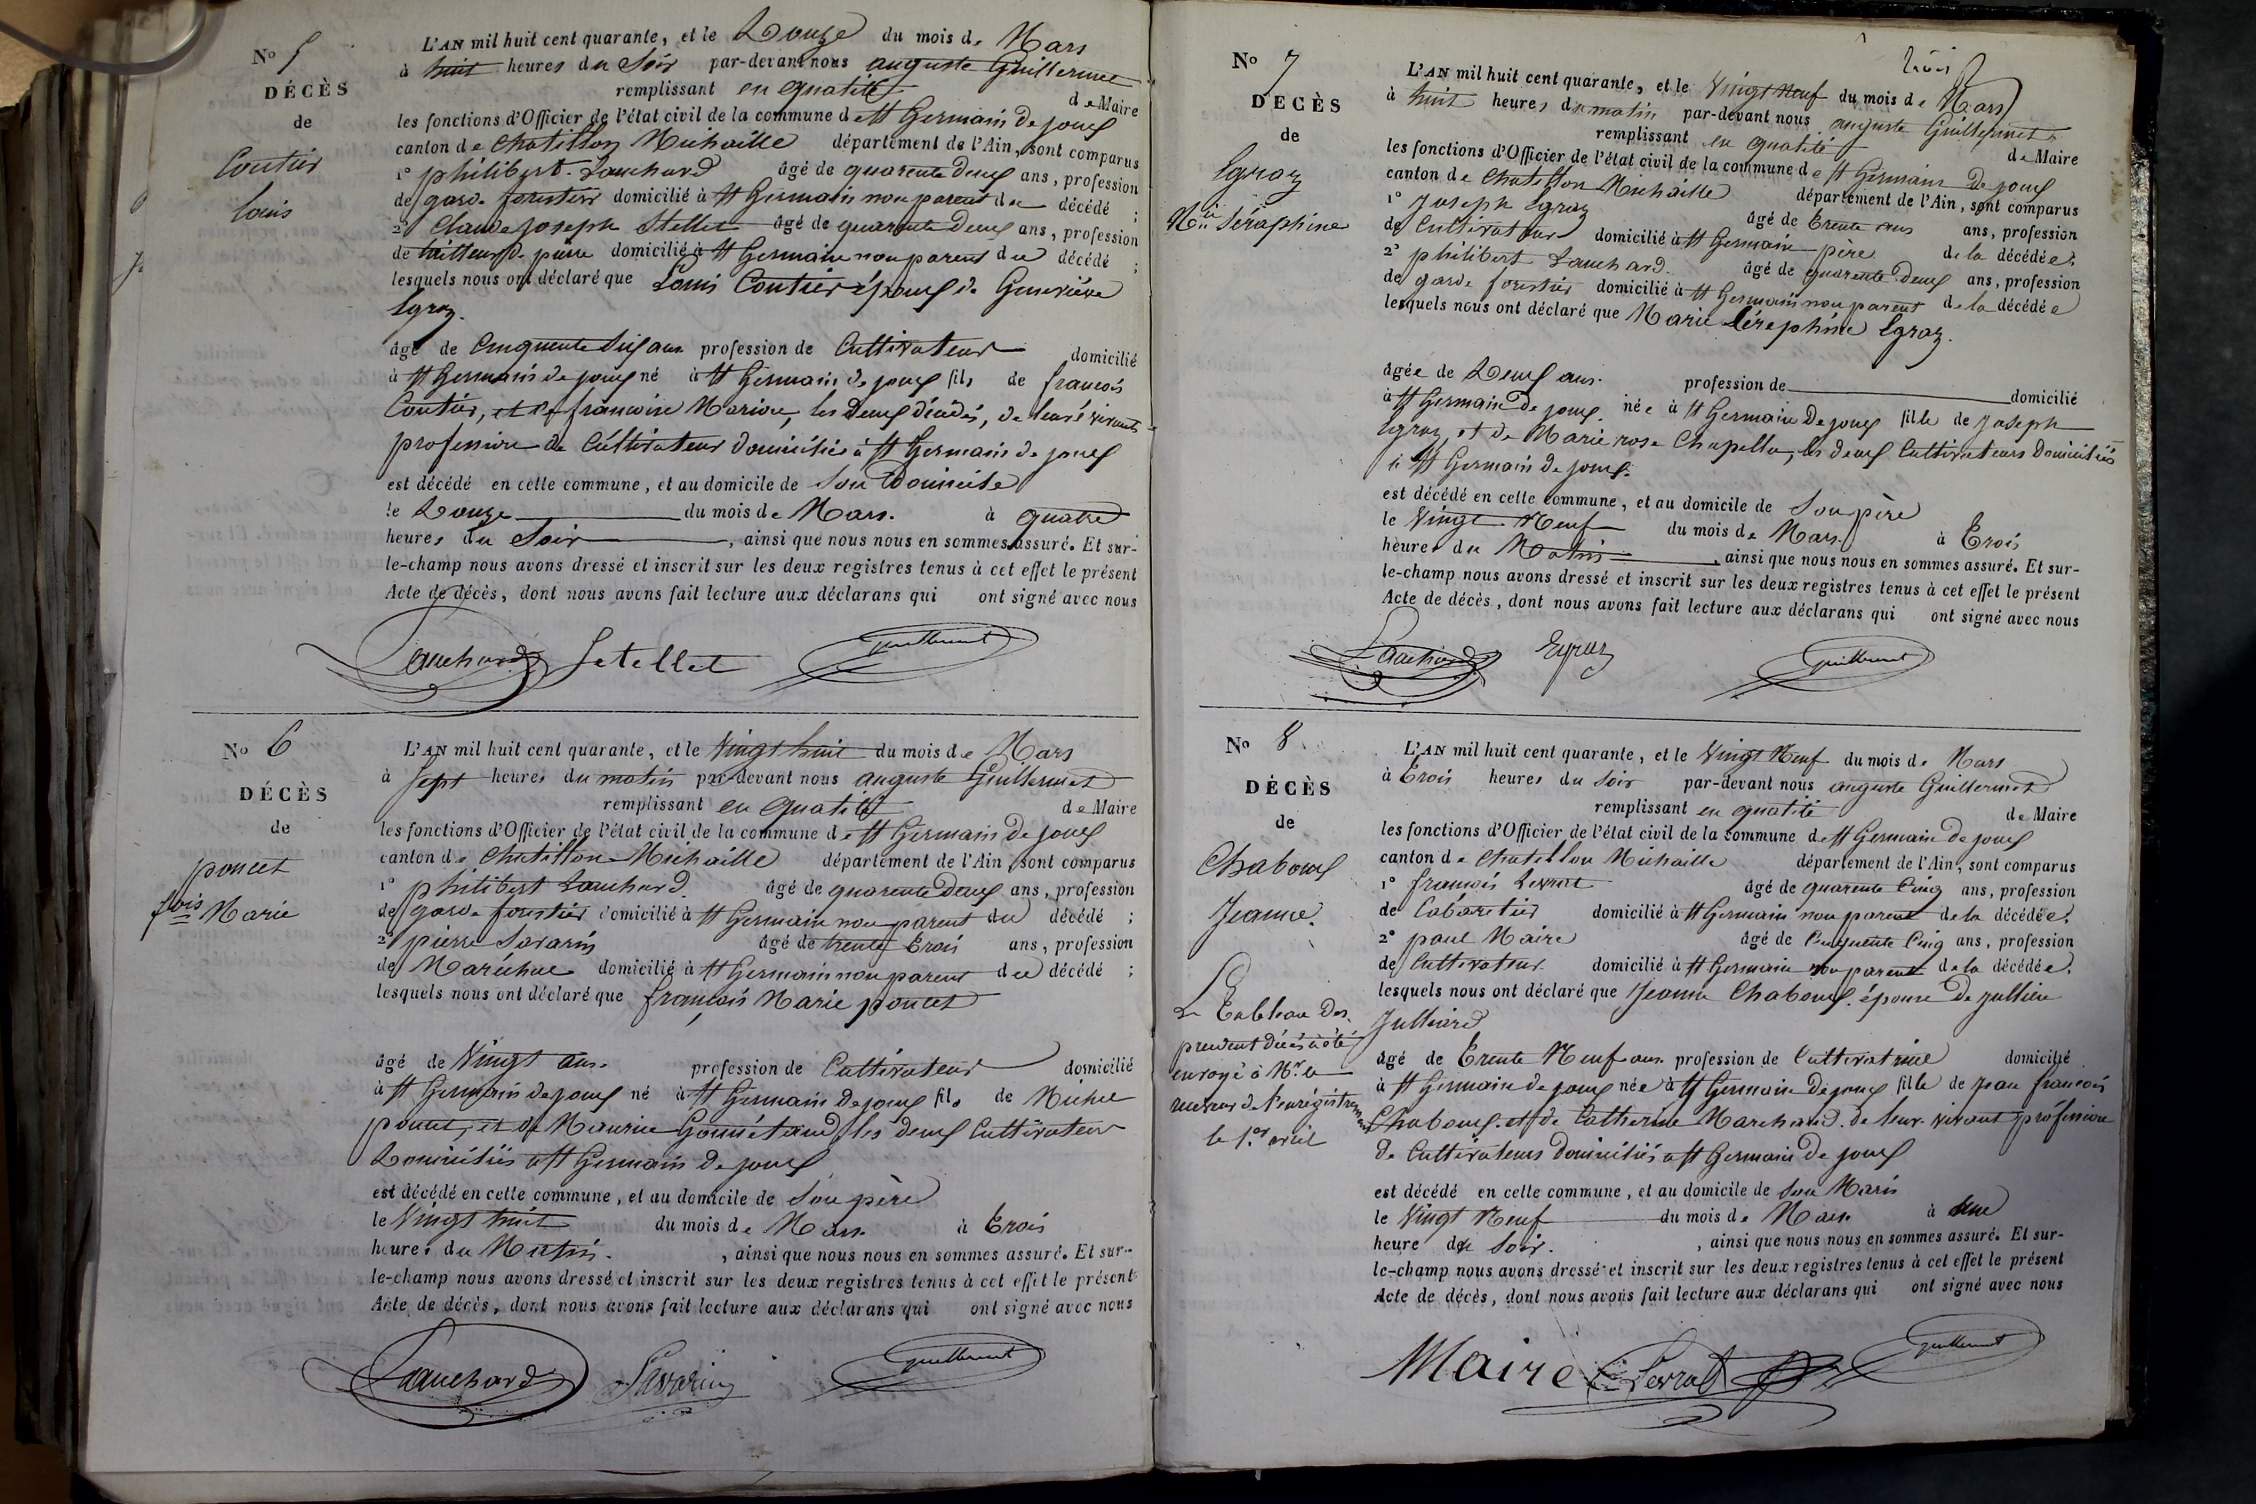 No 5
DÉCÈS
de
Coutier
Louis
L'AN mil huit cent quarante, et le Douze du mois de Mars
à huit heures du Soir par-devant nous auguste Guillermet
remplissant en qualité de Maire
les fonctions d'Officier de l'état civil de la commune de St Germain De joux
canton de Chatillon Michaille département de l'Ain, sont comparus
1° philibert Lauchard âgé de quarente Deux ans, profession
de garde forestier domicilié à St Germain non parent du décédé ;
2° Claude joseph Stellet âgé de quarente Deux ans, profession
de tailleur de pierre domicilié à St Germain non parent du décédé ;
lesquels nous ont déclaré que Louis Coutier époux de Geneviève
Egraz.
âgé de Cinquente Six ans profession de Cultivateur domicilié
à St Germain de joux né à St Germain de joux fils de françois
Coutier, et de françoise Marion, les Deux décédés, de leurs vivants
profession de Cultivateur domiciliés à St Germain de joux
est décédé en cette commune, et au domicile de Son Domicile
le Douze du mois de Mars. à quatre
heures du Soir, ainsi que nous nous en sommes assuré. Et sur-
le-champ nous avons dressé et inscrit sur les deux registres tenus à cet effet le présent
Acte de décès, dont nous avons fait lecture aux déclarans qui ont signé avec nous
Lauchard Setellet guillermet
No 6
DÉCÈS
de
poncet
fois Marie
L'AN mil huit cent quarante, et le Vingt huit du mois de Mars
à Sept heures du matin par-devant nous auguste Guillermet
remplissant en qualité de Maire
les fonctions d'Officier de l'état civil de la commune de St Germain De joux
canton de Chatillon Michaille département de l'Ain, sont comparus
1° philibert Lauchard âgé de quarente Deux ans, profession
de garde forestier domicilié à St Germain non parent du décédé ;
2° pierre Savarin âgé de trente trois ans, profession
de Maréchal domicilié à St Germain non parent du décédé ;
lesquels nous ont déclaré que françois Marie poncet
âgé de Vingt ans. profession de Cultivateur domicilié
à St Germain de joux né à St Germain De joux fils de Michel
poncet, et de Maurice les deux Cultivateur
Domiciliés à St Germain De joux
est décédé en cette commune, et au domicile de Son père
le Vingt huit du mois de Mars. à trois
heures du Matin. , ainsi que nous nous en sommes assuré. Et sur-
le-champ nous avons dressé et inscrit sur les deux registres tenus à cet effet le présent
Acte de décès, dont nous avons fait lecture aux déclarans qui ont signé avec nous
Lauchard Savarin guillermet
trois
No 7
DECÈS
de
Egraz
Mie Séraphine
L'AN mil huit cent quarante, et le Vingt Neuf du mois de Mars
à huit heures du matin par-devant nous auguste Guillermet
remplissant en qualité de Maire
les fonctions d'Officier de l'état civil de la commune de St Germain De joux
canton de Chatillon Michaille département de l'Ain, sont comparus
1° Joseph Egraz âgé de trente ans, profession
de Cultivateur domicilié à St Germain père de la décédée ;
2° philibert Lauchard. âgé de quarente Deux ans, profession
de garde forestier domicilié à St Germain non parent de la décédée
lesquels nous ont déclaré que Marie Séraphine Egraz.
âgée de Deux ans. profession de domicilié
à St Germain De joux. née à St Germain De joux fille de Joseph
Egraz, et de Marie rose Chapelle, les deux Cultivateurs Domiciliés
à St Germain de joux.
est décédé en cette commune, et au domicile de Son père
le Vingt Neuf du mois de Mars. à trois
heures du Matin , ainsi que nous nous en sommes assuré. Et sur-
le-champ nous avons dressé et inscrit sur les deux registres tenus à cet effet le présent
Acte de décès, dont nous avons fait lecture aux déclarans qui ont signé avec nous
Lauchard Egraz guillermet
No 8
DÉCÈS
de
Chaboux
Jeanne.
Le tableau des
présent décès a été
envoyé à Mr le
receveur de l'enrégistrement
le 1er avril
L'AN mil huit cent quarante, et le Vingt Neuf du mois de Mars
à trois heures du Soir par-devant nous auguste Guillermet
remplissant en qualité de Maire
les fonctions d'Officier de l'état civil de la commune de St Germain de joux
canton de Chatillon Michaille département de l'Ain, sont comparus
1° françois Levrat âgé de quarente Cinq ans, profession
de Cabaretier domicilié à St Germain non parent de la décédée ;
2° paul Maire âgé de Cinquente Cinq ans, profession
de Cultivateur domicilié à St Germain non parent de la décédée ;
lesquels nous ont déclaré que Jeanne Chaboux. épouse De jullien
Julliard
âgé de trente Neuf ans profession de Cultivatrice domicilié
à St Germain de joux née à St Germain De joux fille de jean françois
Chaboux. et de Catherine Marchand. de leur vivant profession
de Cultivateurs Domiciliés à St Germain De joux
est décédé en cette commune, et au domicile de Son Maris
le Vingt Neuf du mois de Mars. à une
heure du Soir. , ainsi que nous nous en sommes assuré. Et sur-
le-champ nous avons dressé et inscrit sur les deux registres tenus à cet effet le présent
Acte de décès, dont nous avons fait lecture aux déclarans qui ont signé avec nous
Maire Levrat guillermet